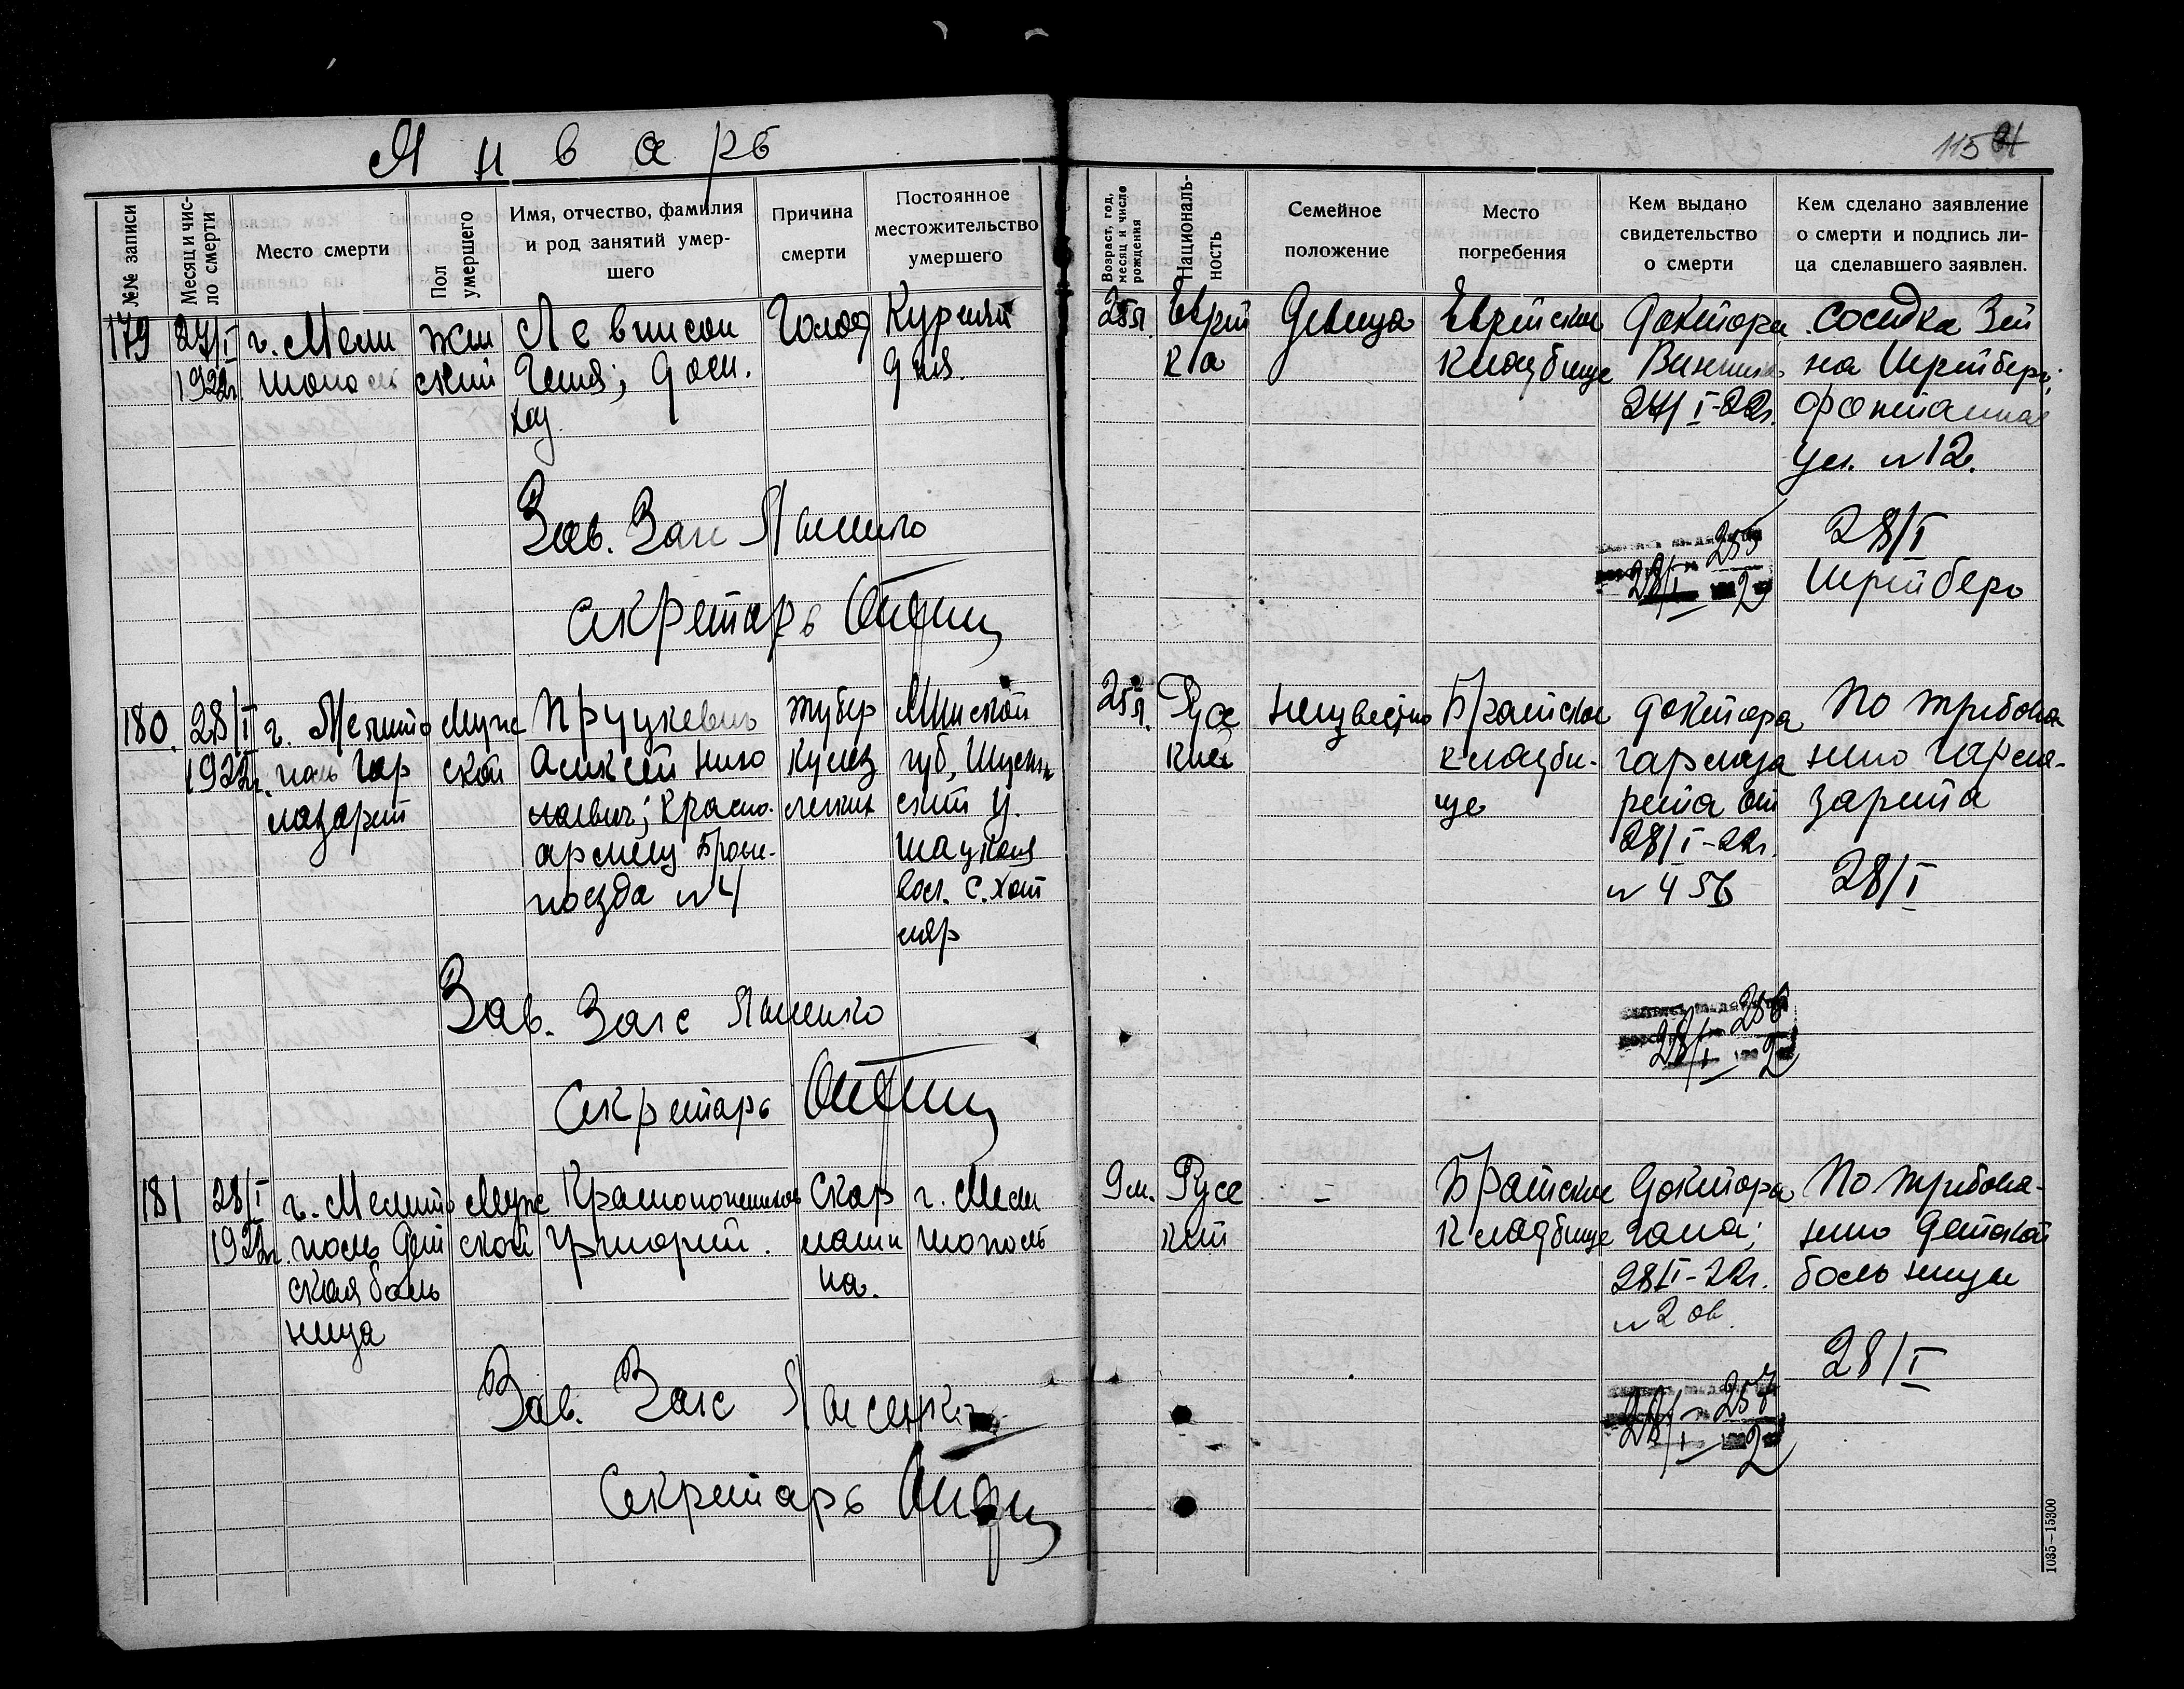 Январь
115
№№ записи
Месяц и число смерти
Место смерти
Пол умершего
Имя, отчество, фамилия и род занятий умершего
Причина смерти
Постоянное местожительство умершего
Возраст, год, месяц и число рождения
Националь-ность
Семейное положение
Место погребения
Кем выдано свидетельство о смерти
Кем сделано заявление о смерти и подпись ли-ца сделавшего заявлен.
179
27/I
1922г.
г. Мели
тополь
жен
ский
Левинсон
Геня; дом.
хоз
Голод
Курлян
дия.
25 л.
Еврей
ка
Девица
Еврейское
кладбище
Доктора
27/I-22г.
соседка Зей
на Шрейберг;
Фонтанная
ул. №12.
28/I
Шрейберг
255
28/I 2
Зав. Загс
Секретарь
180.
28/I
1922г.
г. Мелито
поль Гар
лазарет
Мужс
кой
Пруцкевич
Алексей Нико
лаевич; красно-
армеецБроне-
поезда №4
тубер
кулез
легких
Минской
губ,
ский у.
Шацкая
вол. с.
25 л.
Русс
кий
неизвестно
Братское
кладби-
ще
Доктора
гарлаза
рета от
28/I-22г.
№ 456
По требова
нию Гарла-
зарета
28/I
256
28/I 2
Зав. Загс
Секретарь
181
28/I
1922г.
г. Мелито
поль Дет
ская боль
ница
Мужс
кой
Григорий.
Скар
латин
на.
г. Мели
тополь
9 м.
Русс
кий
-
Братское
кладбище
Доктора
Гана;
28/I-22г.
№ 206.
По требова-
нию Детской
больницы
28/I
257
28/I 2
Зав. Загс
Секретарь
1035-15300